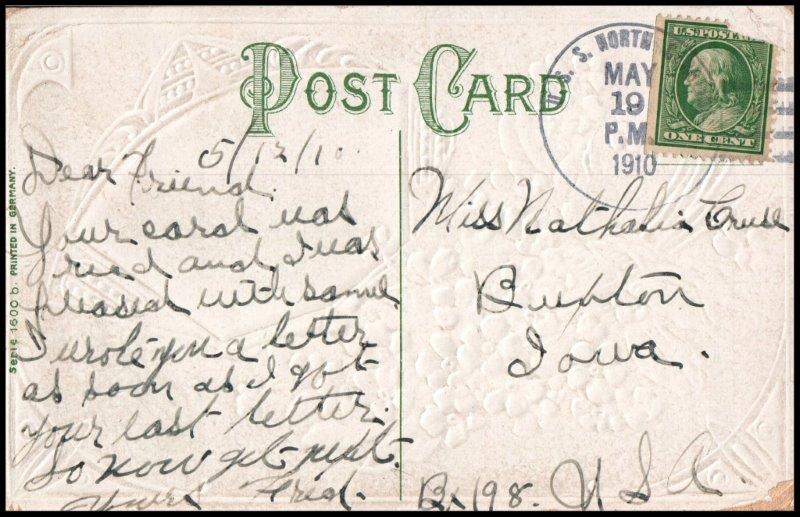 POST CARD
U. S. S. NORTH
MAY
19
P.M.
1910
U.S. POSTA
ONE CENT
Serie 1600 b. PRINTED IN GERMANY.
5/12/10.
Dear Friend
Your card was
and I was
pleased with same.
I wrote you a letter
as soon as I got
your last letter.
So now get next.
Yours Fried.
Miss Nathalia Cruse
Buxton
Iowa.
B. 198. U.S.A.